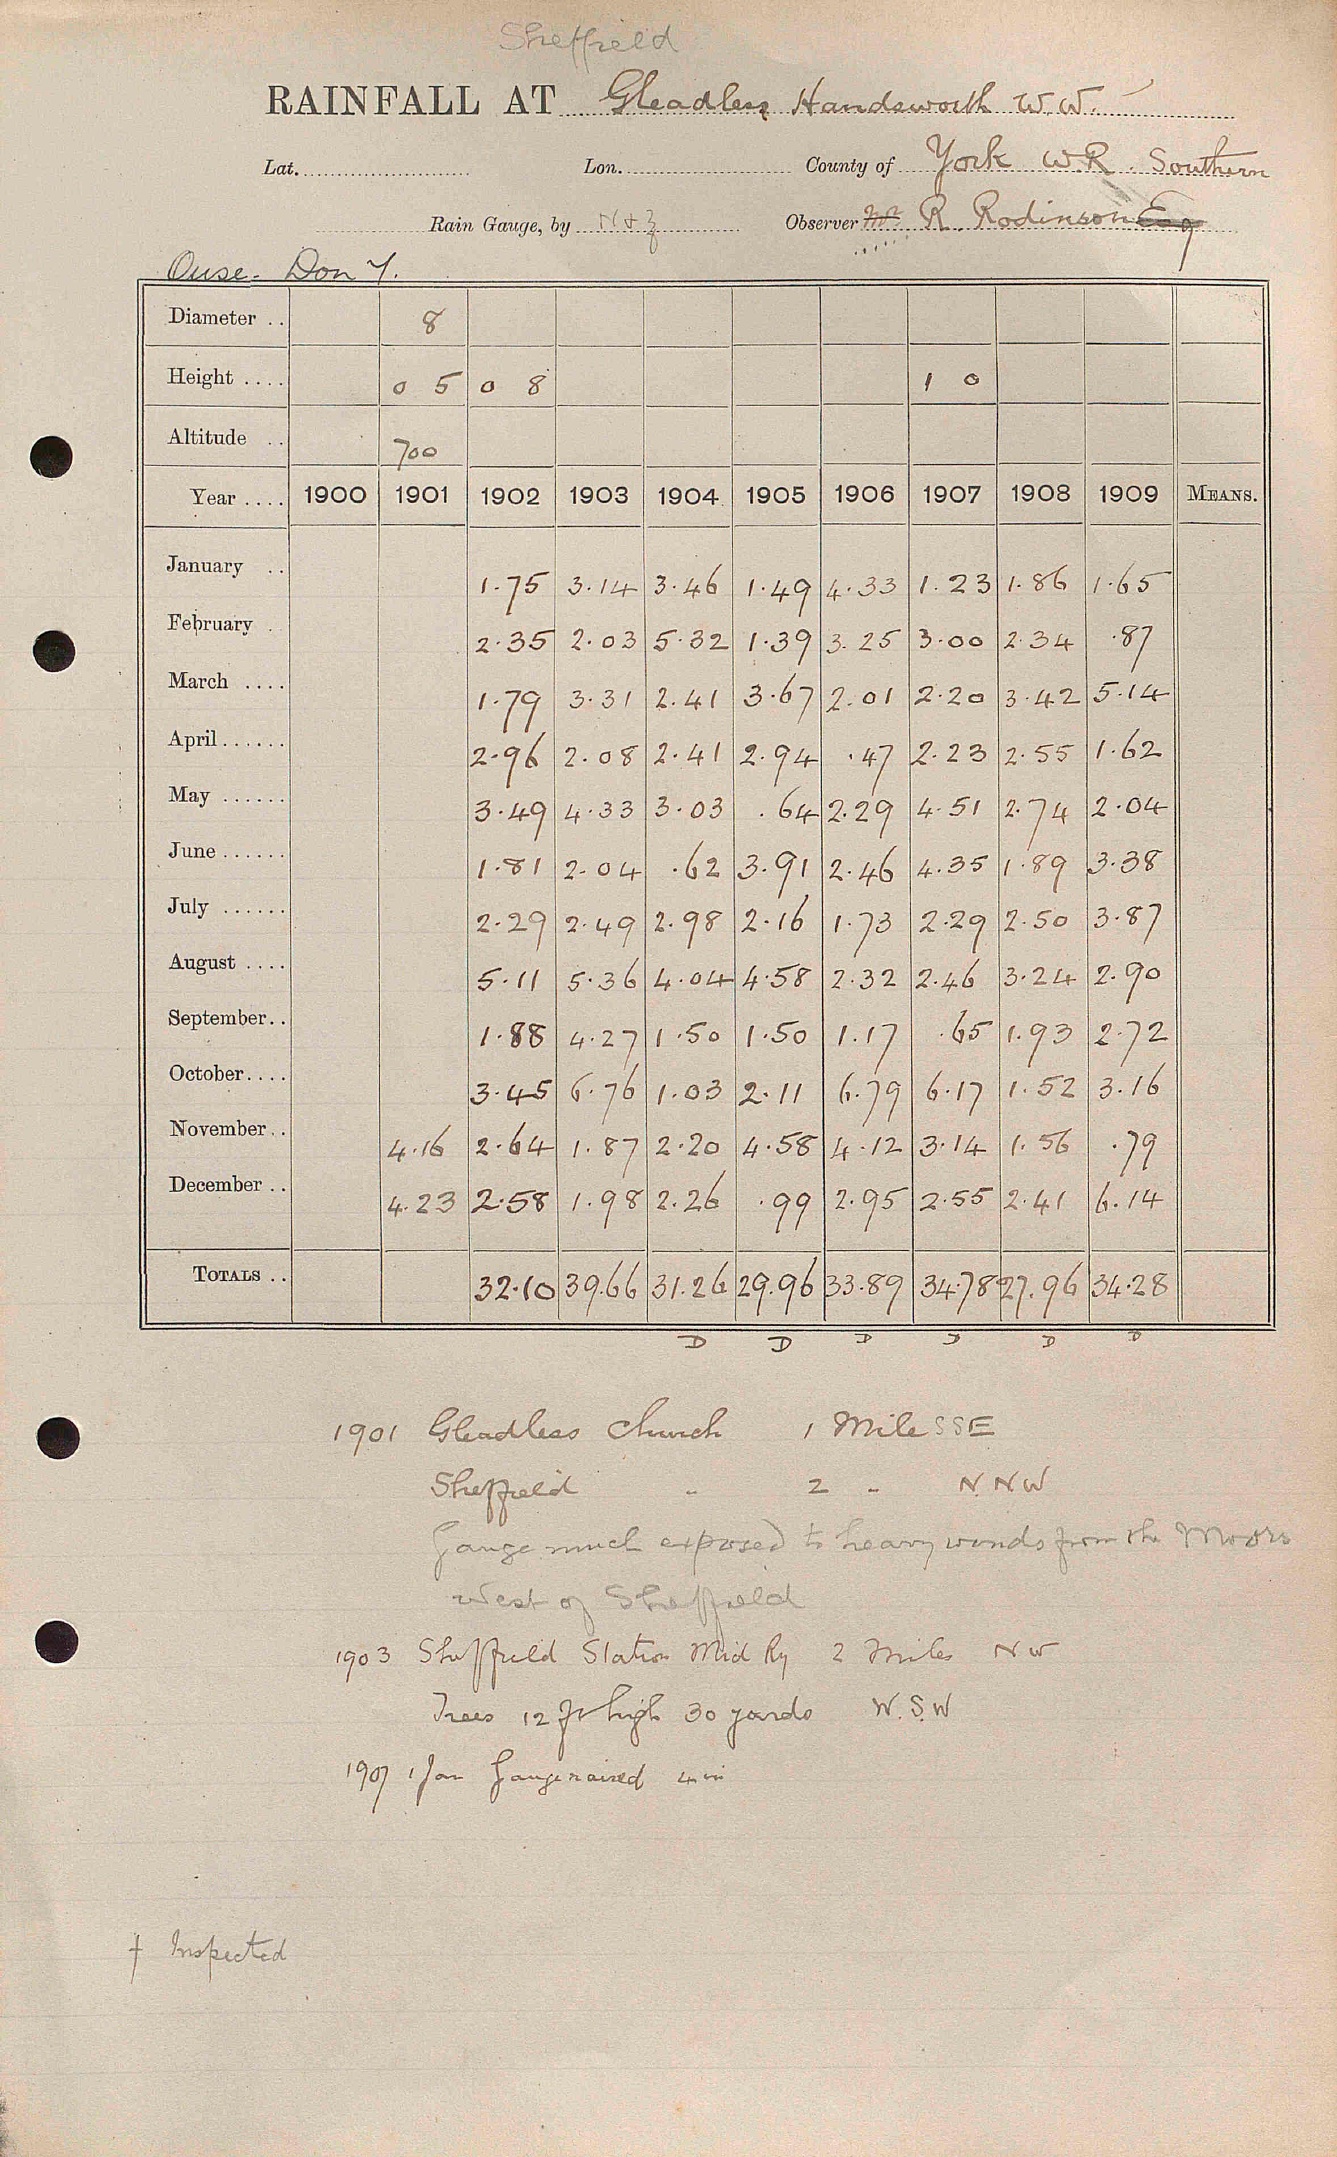 Sheffield
RAINFALL AT Gleadless Handsworth W.W.
Lat. Lon. County of York W.R. Southern
Rain Gauge, by N & Z Observer Mr. R. Rodinson Esq
Ouse - Don Y.
Diameter .. 8
Height .... 0 5 0 8 1 0
Altitude .. 700
Year .... 1900 1901 1902 1903 1904 1905 1906 1907 1908 1909 MEANS.
January .. 1.75 3.14 3.46 1.49 4.33 1.23 1.86 1.65
February . 2.35 2.03 5.32 1.39 3.25 3.00 2.34 .87
March .... 1.79 3.31 2.41 3.67 2.01 2.20 3.42 5.14
April...... 2.96 2.08 2.41 2.94 .47 2.23 2.55 1.62
May ...... 3.49 4.33 3.03 .64 2.29 4.51 2.74 2.04
June...... 1.81 2.04 .62 3.91 2.46 4.35 1.89 3.38
July ...... 2.29 2.49 2.98 2.16 1.73 2.29 2.50 3.87
August .... 5.11 5.36 4.04 4.58 2.32 2.46 3.24 2.90
September.. 1.88 4.27 1.50 1.50 1.17 .65 1.93 2.72
October.... 3.45 6.76 1.03 2.11 6.79 6.17 1.52 3.16
November.. 4.16 2.64 1.87 2.20 4.58 4.12 3.14 1.56 .79
December .. 4.23 2.58 1.98 2.26 .99 2.95 2.55 2.41 6.14
TOTALS .. 32.10 39.66 31.26 29.96 33.89 34.78 27.96 34.28
D D D D D D
1901 Gleadless Church 1 Mile SSE
Sheffield " 2 " N.N.W
Gauge much exposed to heavy winds from the Moors
West of Sheffield
1903 Sheffield Station Mid Ry 2 Miles NW
Trees 12 ft high 30 yards W.S.W
1907 1 Jan Gauge raised 4 in
† Inspected